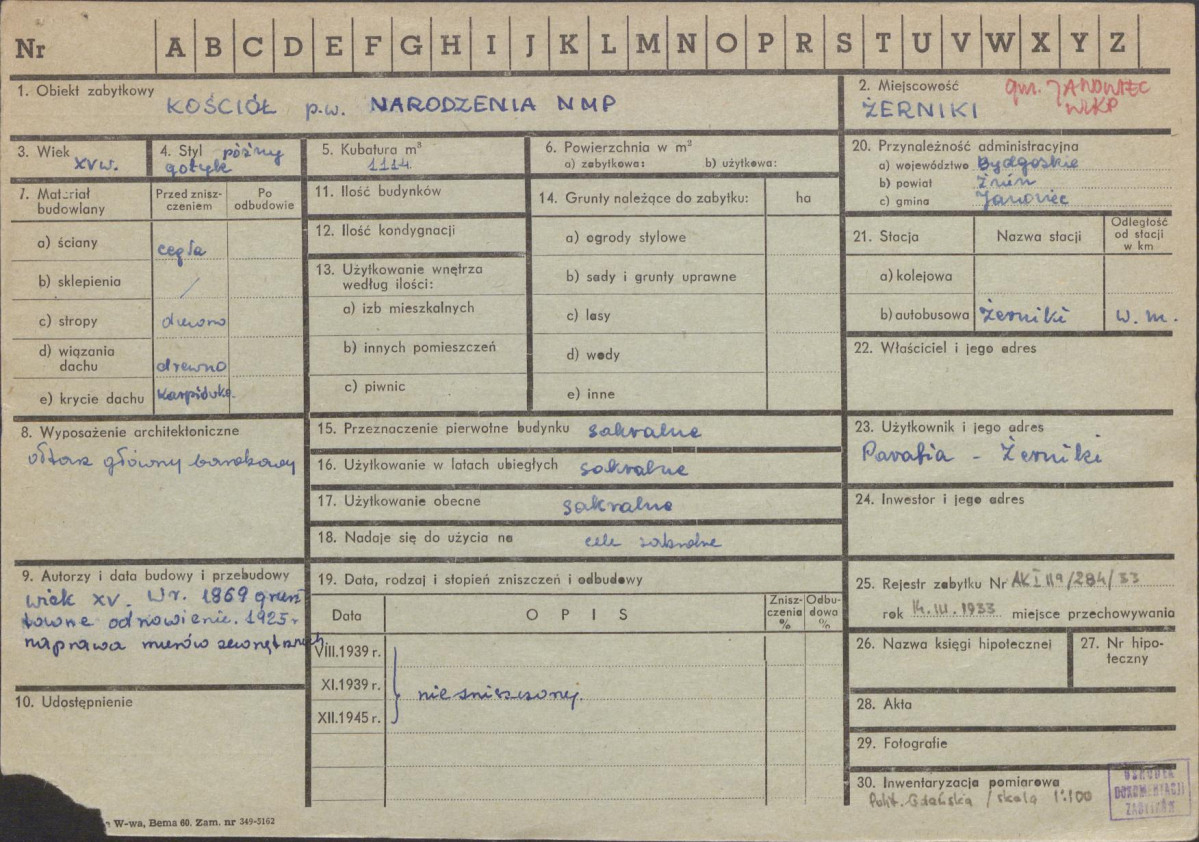 Nr A B C D E F G H I J K L M N O P R S T U V W X Y Z
1. Obiekt zabytkowy
KOŚCIÓŁ p.w. NARODZENIA NMP
2. Miejscowość
gm. JANOWIEC
WLKP
ŻERNIKI
3. Wiek
XV w.
4. Styl późny
gotyk
5. Kubatura m³
1114
6. Powierzchnia w m²
a) zabytkowa: b) użytkowa:
20. Przynależność administracyjna
a) województwo Bydgoskie
b) powiat Żnin
c) gmina Janowiec
7. Materiał
budowlany
Przed znisz-
czeniem
Po
odbudowie
a) ściany cegła
b) sklepienia /
c) stropy drewno
d) wiązania
dachu drewno
e) krycie dachu karpiówka
11. Ilość budynków
12. Ilość kondygnacji
13. Użytkowanie wnętrza
według ilości:
a) izb mieszkalnych
b) innych pomieszczeń
c) piwnic
14. Grunty należące do zabytku: ha
a) ogrody stylowe
b) sady i grunty uprawne
c) lasy
d) wody
e) inne
21. Stacja Nazwa stacji
Odległość
od stacji
w km
a) kolejowa
b) autobusowa Żerniki w. m.
22. Właściciel i jego adres
8. Wyposażenie architektoniczne
ołtarz główny barokowy
15. Przeznaczenie pierwotne budynku sakralne
16. Użytkowanie w latach ubiegłych sakralne
17. Użytkowanie obecne sakralne
18. Nadaje się do użycia na cele sakralne
23. Użytkownik i jego adres
Parafia - Żerniki
24. Inwestor i jego adres
9. Autorzy i data budowy i przebudowy
wiek XV. W r. 1869 grun
towne odnowienie. 1925 r
naprawa murów zewnętrznych
10. Udostępnienie
19. Data, rodzaj i stopień zniszczeń i odbudowy
Data OPIS
Znisz-
czenia
%
Odbu-
dowa
%
VIII.1939 r.
XI.1939 r.
XII.1945 r.
niezniszczony.
25. Rejestr zabytku Nr AK I 11a/284/33
rok 14. III. 1933 miejsce przechowywania
26. Nazwa księgi hipotecznej
27. Nr hipo-
teczny
28. Akta
29. Fotografie
30. Inwentaryzacja pomiarowa
Polit. Gdańska / skala 1:100
OŚRODEK
DOKUMENTACJI
ZABYTKÓW
W-wa, Bema 60. Zam. nr 349-5162